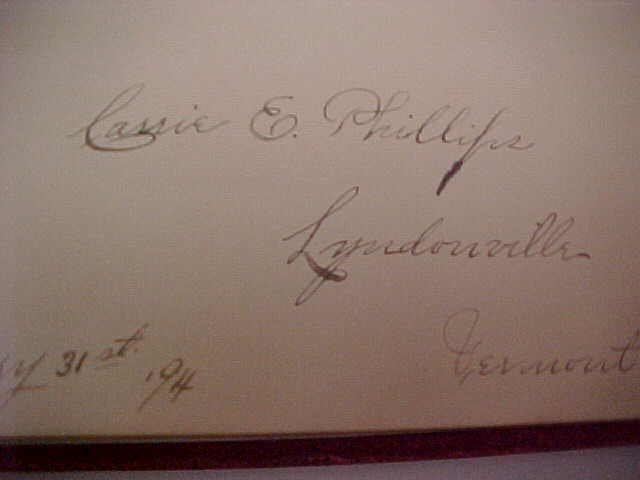 Cassie E. Phillips
Lyndonville
Vermont
31st. '94